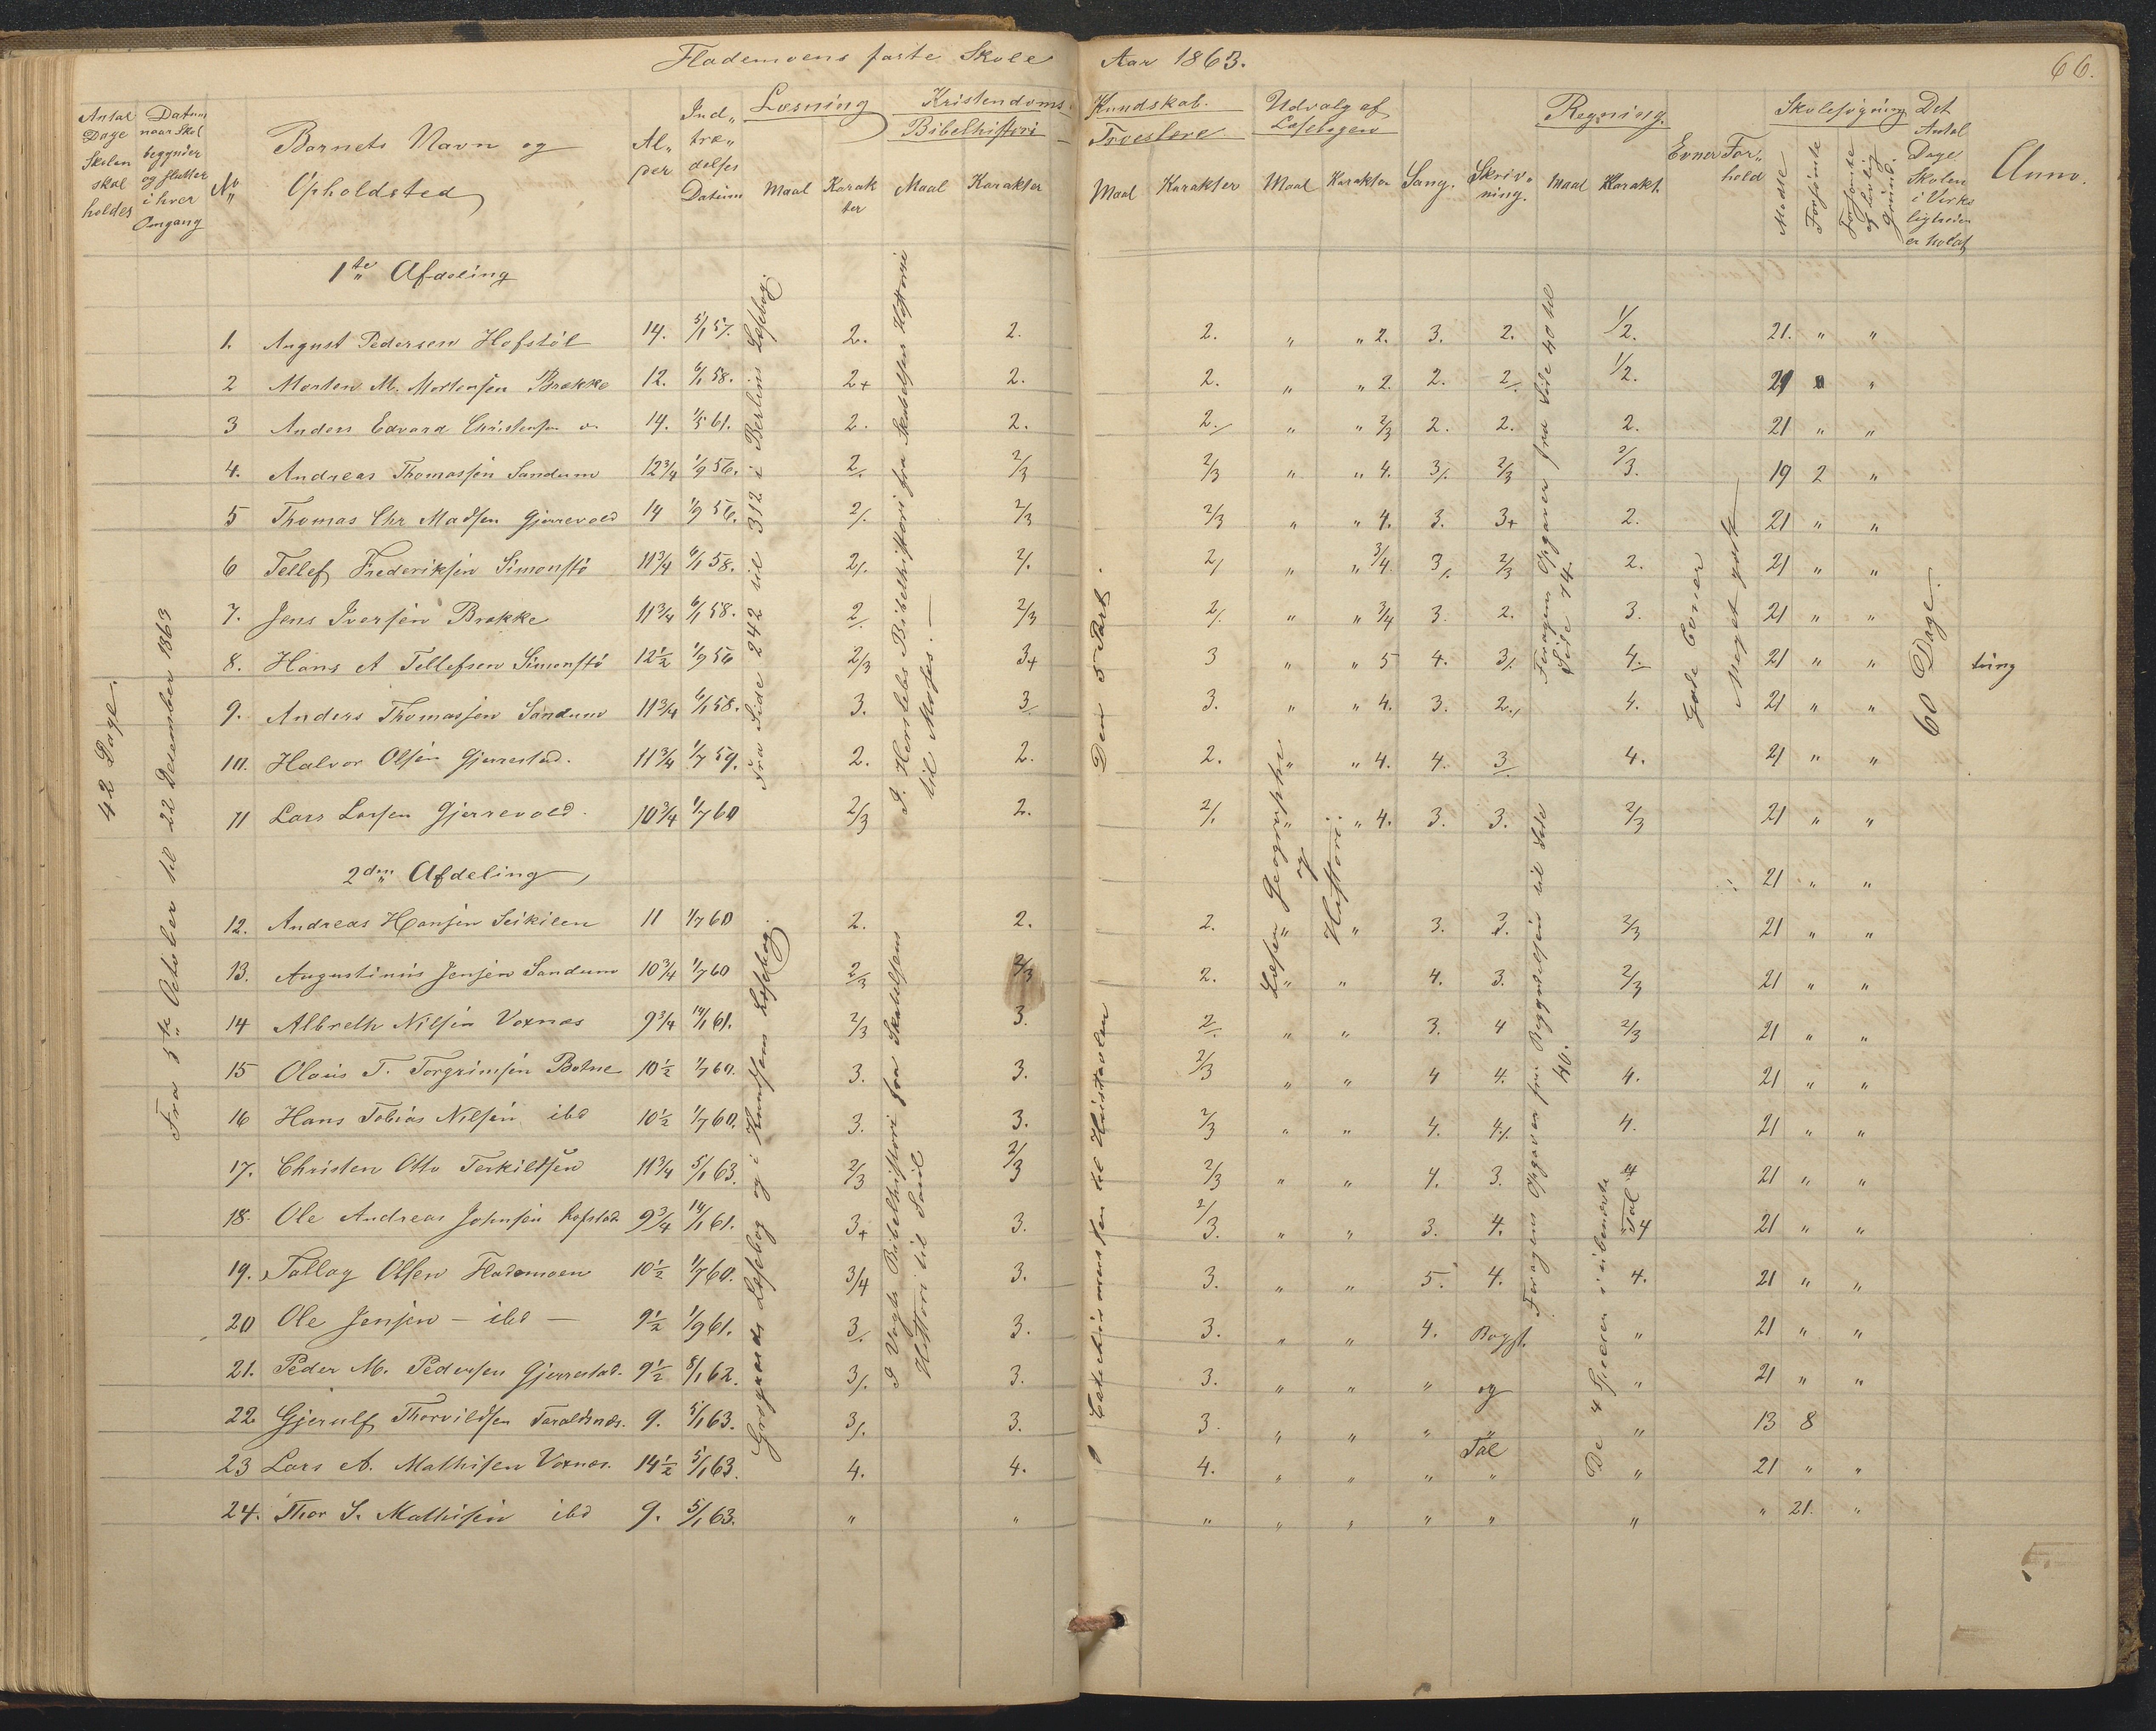 Flademoens faste Skole Aar 1863. 66.
Antal Dage Skolen skal holdes
Datum naar Skol begynder og slutter i hver Omgang
No
Barnets Navn og Opholdsted
Al„ der
Ind„ træ„ delses Datum
Læsning
Maal Karak ter
Kristendoms Kundskab.
Bibelhistori Troeslære
Maal Karakter Maal Karakter
Udvalg af Læsebogen
Maal Karakter
Sang.
Skriv„ ning.
Regning.
Maal Karakt.
Evner
For„ hold
Skolesøgning
Mødte Forsømte Forsømte af lovlig Grund.
Det Antal Dage Skolen i Virke ligheden er holdt
Anm.
42 Dage.
Fra 5te October til 22 Desember 1863
1te Afdeling
1. August Pedersen Hofstøl 14. 5/1 57. 2. 2. 2. „ „ 2. 3. 2. 1/2. 21. „ „
2 Morten M. Mortensen Brække 12. 6/1 58. 2+ 2. 2. „ „ 2. 2. 2/. 1/2. 21 „ „
3 Anders Edvard Christensen 14. 1/5 61. 2. 2. 2./ „ „ 2/3 2. 2. 2. 21 „ „
4. Andreas Thomassen Sandum 12 3/4 1/9 56. 2/. 2/3 2/3 „ „ 4. 3/. 2/3 2/3. 19 2 „
5 Thomas Chr Madsen Gjerrevold 14 1/9 56. 2/. 2/3 2/3 „ „ 4. 3. 3+ 2. 21 „ „
6 Tellef Frederiksen Simonstø 11 3/4 6/1 58. 2/. 2/. 2/ „ „ 3/4 3/. 2/3 2. 21 „ „
7. Jens Iversen Brække 11 3/4 6/1 58. 2/. 2/3 2/. „ „ 3/4 3. 2. 3. 21 „ „
8. Hans A Tellefsen Simonstø 12 1/2 1/9 56 2/3 3+ 3 „ „ 5 4. 3/. 4/. 21 „ „
9. Anders Thomassen Sandum 11 3/4 6/1 58. 3. 3/ 3. „ „ 4. 3. 2./ 4. 21 „ „
10. Halvor Olsen Gjerrestad. 11 3/4 1/7 59. 2. 2. 2. „ „ 4. 4. 3/. 4. 21 „ „
11 Lars Larsen Gjerrevold. 10 3/4 1/7 60 2/3 2. 2/. „ „ 4. 3. 3. 2/3 21 „ „
Fra Side 242 til 312 i Berlins Læsebog.
I. Herslebs Bibelhistori fra Skabelsen Historie til Moses. —
Den 5 Part.
Læsen Geographie og Historie.
Foragens Opgaver fra Side 40 til Side 74.
Gode Evner
Meget godt
60 Dage.
2den Afdeling 21 „ „
12. Andreas Hansen Seikilen 11 1/7 60 2. 2. 2. „ „ 3. 3. 2/3 21 „ „
13. Augustinus Jensen Sandum 10 3/4 1/7 60 2/3 2/3 2. „ „ 4. 3. 2/3 21 „ „
14 Albreth Nilsen Voxnæs 9 3/4 14/1 61. 2/3 3. 2/. „ „ 3. 4 2/3 21 „ „
15 Olaus T. Torgrimsen Botne 10 1/2 1/7 60. 3. 3. 2/3 „ „ 4 4. 4. 21 „ „
16 Hans Tobias Nilsen ibd 10 1/2 1/7 60. 3. 3. 2/3 „ „ 4. 4/. 4. 21 „ „
17. Christen Otto Terkildsen 11 3/4 5/1 63. 2/3 2/3 2/3 „ „ 4. 3. 4 21 „ „
18. Ole Andreas Johnsen Hofstad 9 3/4 14/1 61. 3+ 3. 2/3. „ „ 3. 4. 4 21 „ „
19. Tallag Olsen Flademoen 10 1/2 1/7 60. 3/4 3. 3. „ „ 5. 4. 4. 21 „ „
20 Ole Jensen — ibd — 9 1/2 1/9 61. 3/. 3. 3. „ „ 4. Bogst. „ 21 „ „
21. Peder M. Pedersen Gjerrestad. 9 1/2 8/1 62. 3/. 3. 3. „ „ „ og „ 21 „ „
22 Gjerulf Thorvildsen Taraldsnæs. 9. 5/1 63. 3/. 3. 3. „ „ „ „ 13 8
23 Lars A. Mathisen Voxnæs. 14 1/2 5/1 63. 4. 4. 4. „ „ „ Tal „ „ 21 „ „
24. Thor S. Mathisen ibd 9. 5/1 63. „ „ „ „ „ „ „ „ „ 21. „
Grøgaards Læsebog og i Knudsens Læsebog.
I Vogts Bibelhistori fra Skabelsens Histori til Saul
Catechismusen til Hustavlen
Foragens Opgaver fra Begyndelsen til Side 40.
De 4 Specier i ubenævnte Tal